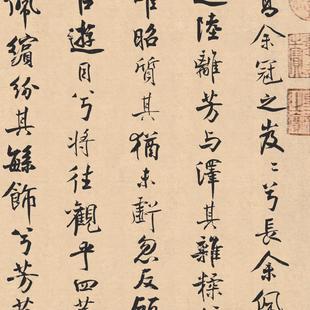 高余冠之岌〻兮長余佩
陸離芳与澤其雜糅
唯昭質其猶未虧忽反顧
遊目兮將往觀乎四荒
佩繽紛其繁飾兮芳菲